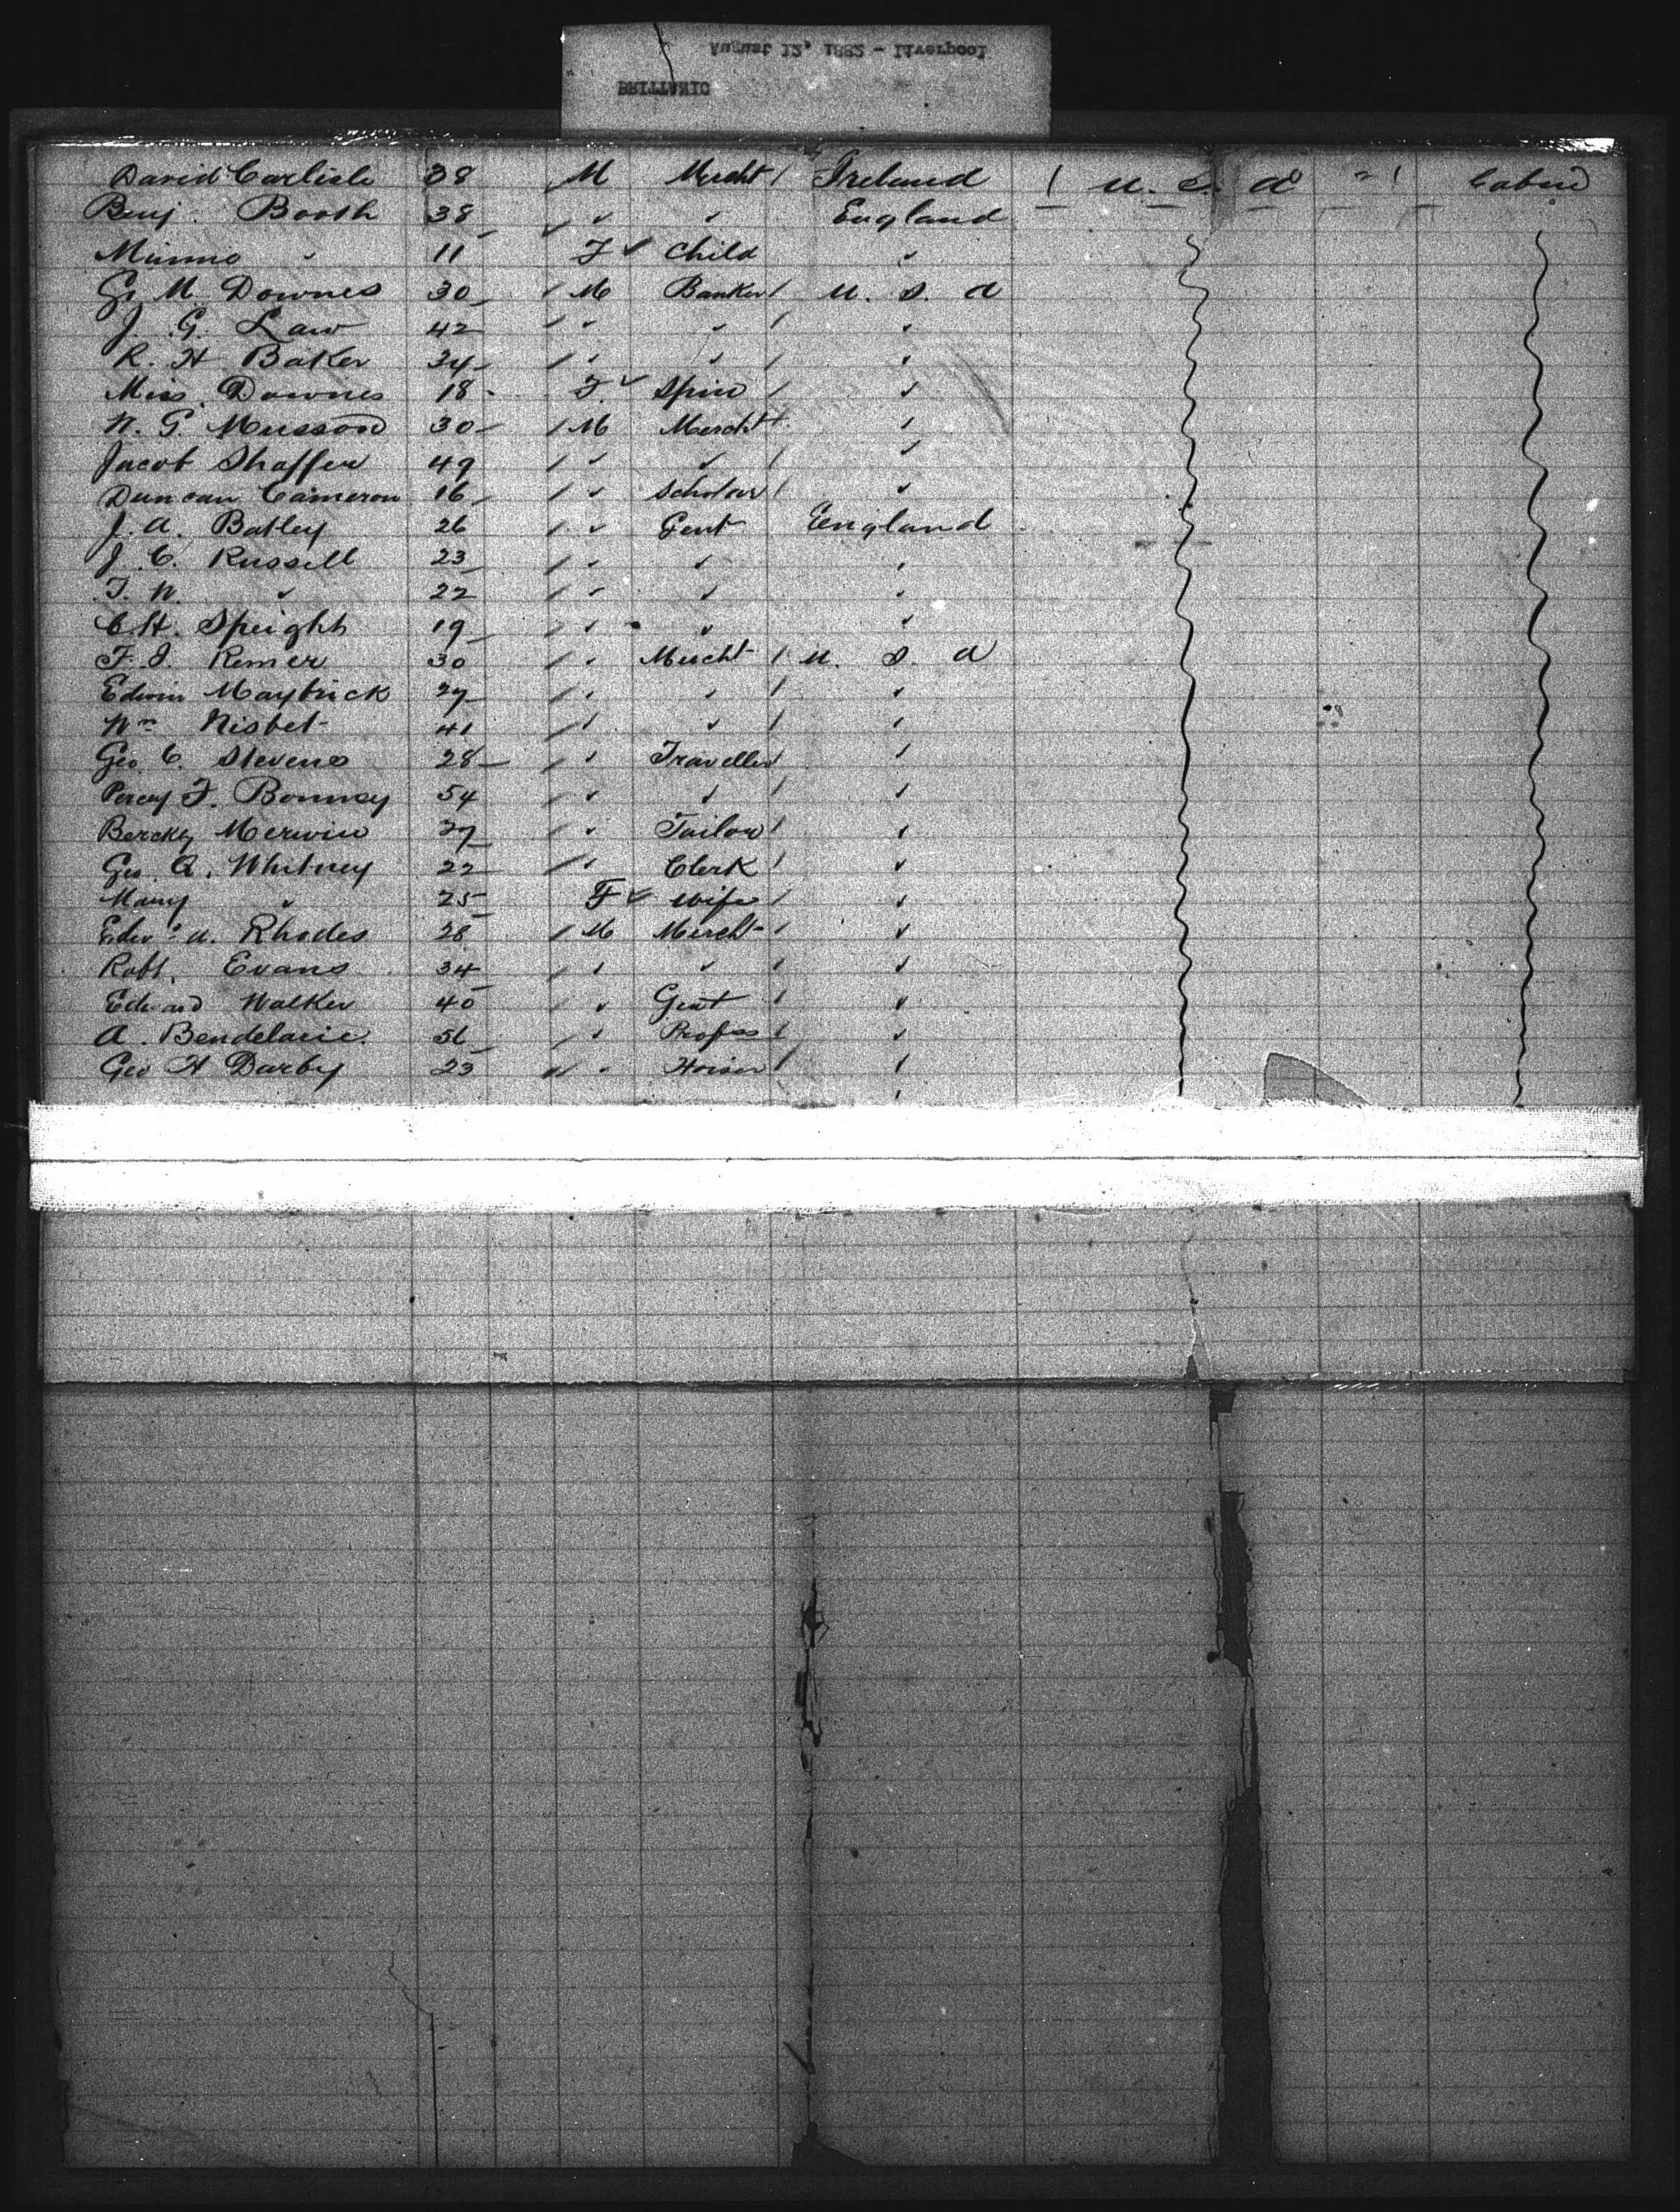 BRITTANIC
August 12, 1882 - Liverpool
David Carlisle 38 M Mercht / Ireland / U. S. A " / Cabin
Benj. Booth 38 ✓ ✓ ✓ England
Minnie " 11 F ✓ Child ✓
G. M. Downes 30 / M Banker / U. S. A
J. G. Law 42 / ✓ ✓ / ✓
R. H Baker 34 / ✓ ✓ / ✓
Miss. Downes 18 F. ✓ Spin / ✓
30 / M Mercht ✓
Jacob Shaffer 49 / ✓ ✓ / ✓
Duncan Cameron 16 / ✓ Scholar / ✓
J. A. Batley 26 / ✓ Gent England
J. C. Russell 23 / ✓ ✓ ✓
✓ 22 / ✓ ✓ ✓
C. H. Speight 19 / ✓ ✓ ✓
F. J. Remer 30 / ✓ Mercht / U. S. A
Edwin Maybrick 29 / ✓ ✓ / ✓
Wm Nisbet 41 / ✓ ✓ / ✓
Geo. C. Stevens 28 / ✓ Traveller / ✓
Percy F. Bonney 54 / ✓ ✓ / ✓
Merwin / ✓ Tailor / ✓
Geo. Q. Whitney 22 / ✓ Clerk / ✓
Mary ✓ 25 F ✓ Wife / ✓
Edwd A. Rhodes 28 / M Mercht / ✓
Robt. Evans 34 / ✓ ✓ / ✓
Edward Walker 40 / ✓ Gent / ✓
A. Bendelarie. / ✓ Profess / ✓
Geo H Darby 23 / ✓ Hosier / ✓